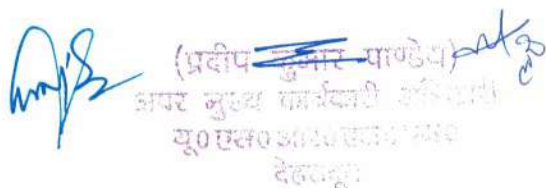 (प्रदीप कुमार पाण्डेय)
अपर मुख्य कार्यकारी अधिकारी
यू०एस०आर०एल०एम०
देहरादून